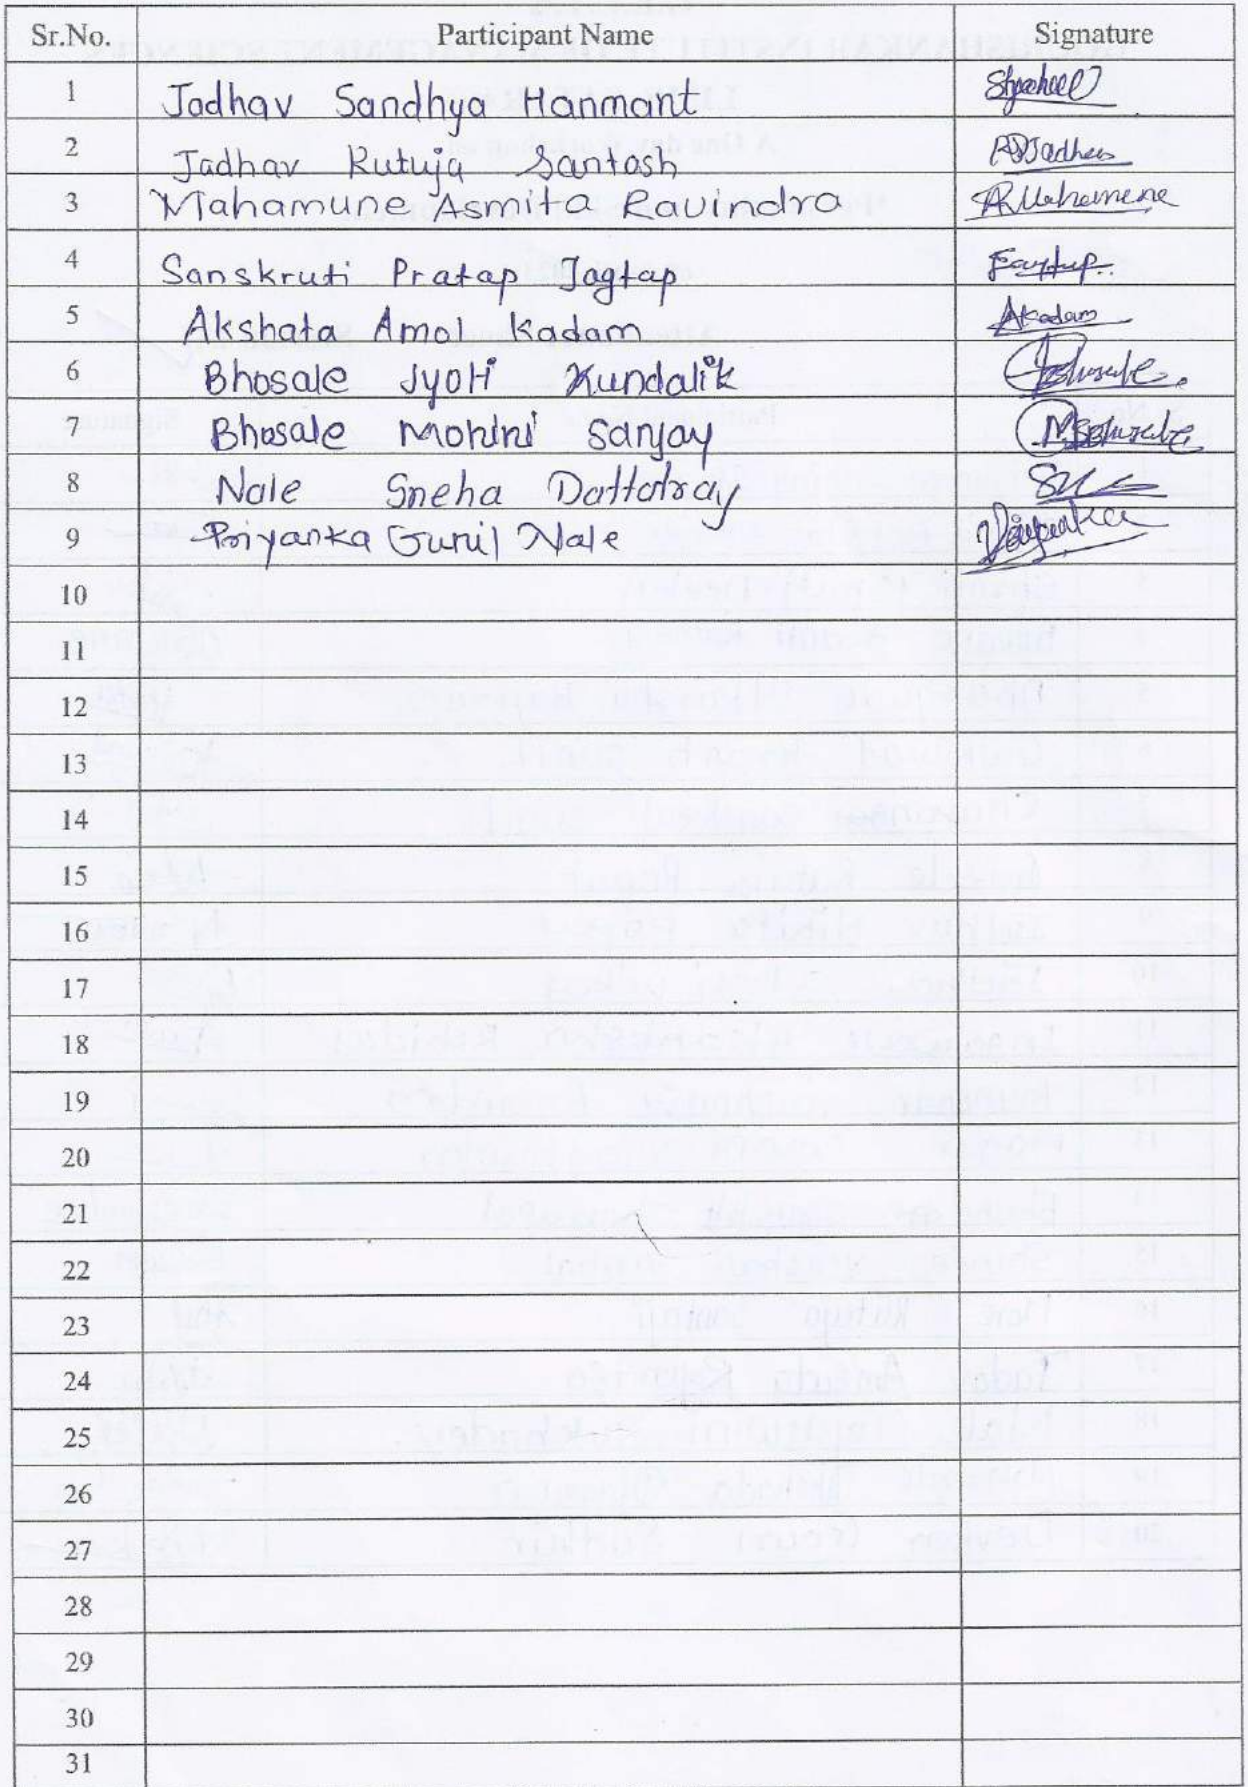 Sr.No. Participant Name Signature
1 Jadhav Sandhya Hanmant
2 Jadhav Rutuja Santosh RSJadhav
3 Mahamune Asmita Ravindra ARMahamune
4 Sanskruti Pratap Jagtap
5 Akshata Amol Kadam Akadam
6 Bhosale Jyoti Kundalik
7 Bhosale Mohini Sanjay MSBhosale
8 Nale Sneha Dattatray
9 Priyanka Sunil Nale Priyanka
10
11
12
13
14
15
16
17
18
19
20
21
22
23
24
25
26
27
28
29
30
31